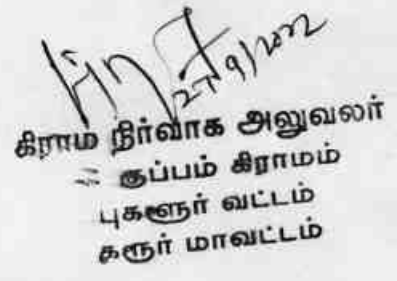 27/9/2022
கிராம நிர்வாக அலுவலர்
குப்பம் கிராமம்
புகளூர் வட்டம்
கரூர் மாவட்டம்